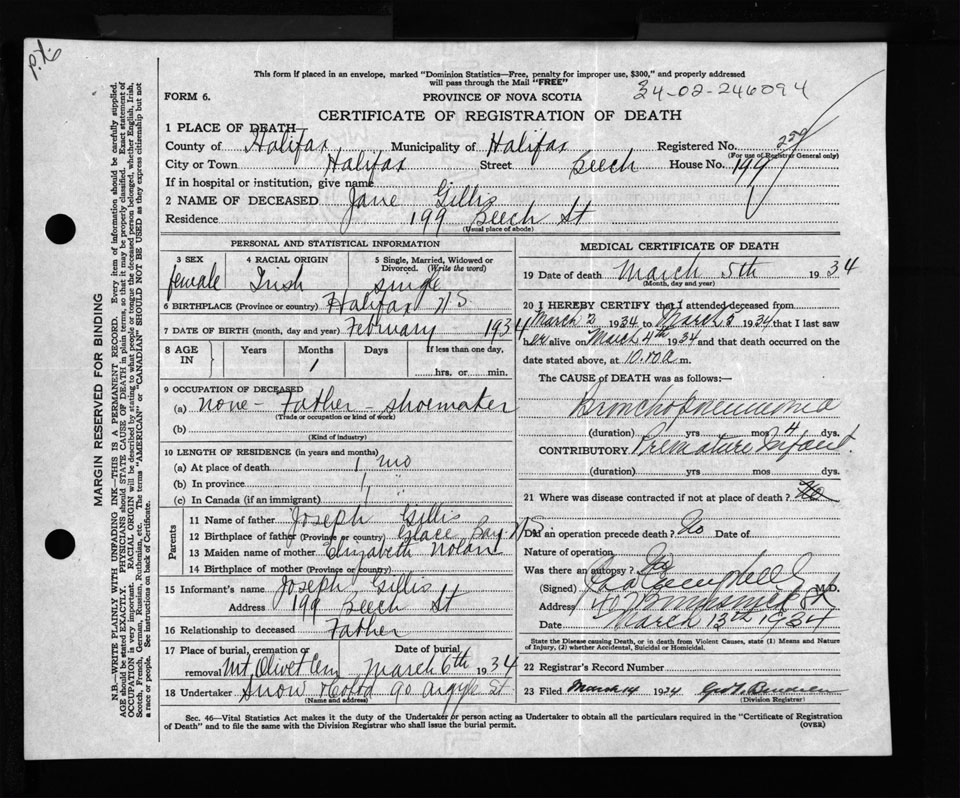 P.X.
This form if placed in an envelope, marked "Dominion Statistics—Free, penalty for improper use, $300," and properly addressed
will pass through the Mail "FREE"
34-02-246094
FORM 6. PROVINCE OF NOVA SCOTIA
CERTIFICATE OF REGISTRATION OF DEATH
1 PLACE OF DEATH
County of Halifax Municipality of Halifax Registered No. 259
(For use of Registrar General only)
City or Town Halifax Street Beech House No. 199
If in hospital or institution, give name
2 NAME OF DECEASED Jane Gillis
Residence 199 Beech St
(Usual place of abode)
PERSONAL AND STATISTICAL INFORMATION
3 SEX 4 RACIAL ORIGIN 5 Single, Married, Widowed or Divorced. (Write the word)
female Irish single
6 BIRTHPLACE (Province or country) Halifax N S
7 DATE OF BIRTH (month, day and year) February 1934
8 AGE IN Years Months Days If less than one day,
1 hrs. or min.
9 OCCUPATION OF DECEASED
(a) None - Father shoemaker
(Trade or occupation or kind of work)
(b)
(Kind of industry)
10 LENGTH OF RESIDENCE (in years and months)
(a) At place of death 1 mo
(b) In province 1 "
(c) In Canada (if an immigrant) 1
Parents
11 Name of father Joseph Gillis
12 Birthplace of father (Province or country) Glace Bay N S
13 Maiden name of mother Elizabeth Nolan
14 Birthplace of mother (Province or country)
15 Informant's name Joseph Gillis
Address 199 Beech St
16 Relationship to deceased Father
17 Place of burial, cremation or removal Mt. Olivet Cem Date of burial March 6th 1934
18 Undertaker Snow & Co Ltd 90 Argyle St
(Name and address)
MEDICAL CERTIFICATE OF DEATH
19 Date of death March 5th 1934
(Month, day and year)
20 I HEREBY CERTIFY that I attended deceased from
March 2 1934 to March 5 1934 that I last saw
her alive on March 4th 1934 and that death occurred on the
date stated above, at 10.10 a m.
The CAUSE of DEATH was as follows:—
Bronchopneumonia
(duration) yrs mos 4 dys.
CONTRIBUTORY Premature Infant.
(duration) yrs. mos. dys.
21 Where was disease contracted if not at place of death?
Did an operation precede death? No Date of
Nature of operation
Was there an autopsy? No
(Signed) Campbell M.D.
Address 407 Brunswick St
Date March 13th 1934
State the Disease causing Death, or in death from Violent Causes, state (1) Means and Nature
of Injury, (2) whether Accidental, Suicidal or Homicidal.
22 Registrar's Record Number
23 Filed March 14 1934
(Division Registrar)
Sec. 46—Vital Statistics Act makes it the duty of the Undertaker or person acting as Undertaker to obtain all the particulars required in the "Certificate of Registration
of Death" and to file the same with the Division Registrar who shall issue the burial permit. (OVER)
MARGIN RESERVED FOR BINDING
N.B.—WRITE PLAINLY WITH UNFADING INK—THIS IS A PERMANENT RECORD. Every item of information should be carefully supplied.
AGE should be stated EXACTLY. PHYSICIANS should STATE CAUSE OF DEATH in plain terms, so that it may be properly classified. Exact statement of
OCCUPATION is very important. RACIAL ORIGIN will be described by stating to what people or tongue the deceased person belonged, whether English, Irish,
Scotch, French, German, Russian, Ruthenian, etc. The terms "AMERICAN" or "CANADIAN" SHOULD NOT BE USED as they express citizenship but not
a race or people. See instructions on back of Certificate.